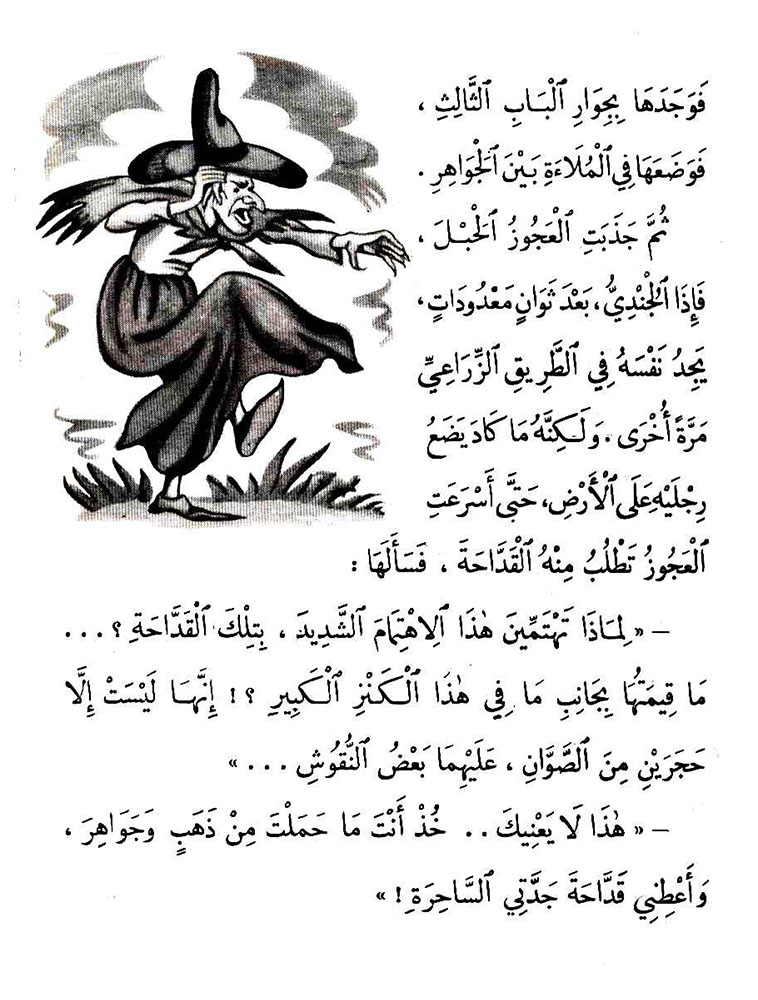 فَوَجَدَهَا بِجِوَارِ ٱلْبَابِ ٱلثَّالِثِ ،
فَوَضَعَهَا فِي ٱلْمُلَاءَةِ بَيْنَ ٱلْجَوَاهِرِ .
ثُمَّ جَذَبَتِ ٱلْعَجُوزُ ٱلْحَبْلَ ،
فَإِذَا ٱلْجُنْدِيُّ ، بَعْدَ ثَوَانٍ مَعْدُودَاتٍ ،
يَجِدُ نَفْسَهُ فِي ٱلطَّرِيقِ ٱلزِّرَاعِيِّ
مَرَّةً أُخْرَى . وَلَكِنَّهُ مَا كَادَ يَضَعُ
رِجْلَيْهِ عَلَى ٱلْأَرْضِ ، حَتَّى أَسْرَعَتِ
ٱلْعَجُوزُ تَطْلُبُ مِنْهُ ٱلْقَدَّاحَةَ ، فَسَأَلَهَا :
– « لِمَاذَا تَهْتَمِّينَ هٰذَا ٱلِاهْتِمَامَ ٱلشَّدِيدَ ، بِتِلْكَ ٱلْقَدَّاحَةِ ؟ . . .
مَا قِيمَتُهَا بِجَانِبِ مَا فِي هٰذَا ٱلْكَنْزِ ٱلْكَبِيرِ ؟ ! إِنَّهَا لَيْسَتْ إِلَّا
حَجَرَيْنِ مِنَ ٱلصَّوَّانِ ، عَلَيْهِمَا بَعْضُ ٱلنُّقُوشِ . . . »
– « هٰذَا لَا يَعْنِيكَ . . خُذْ أَنْتَ مَا حَمَلْتَ مِنْ ذَهَبٍ وَجَوَاهِرَ ،
وَأَعْطِنِي قَدَّاحَةَ جَدَّتِي ٱلسَّاحِرَةِ ! »